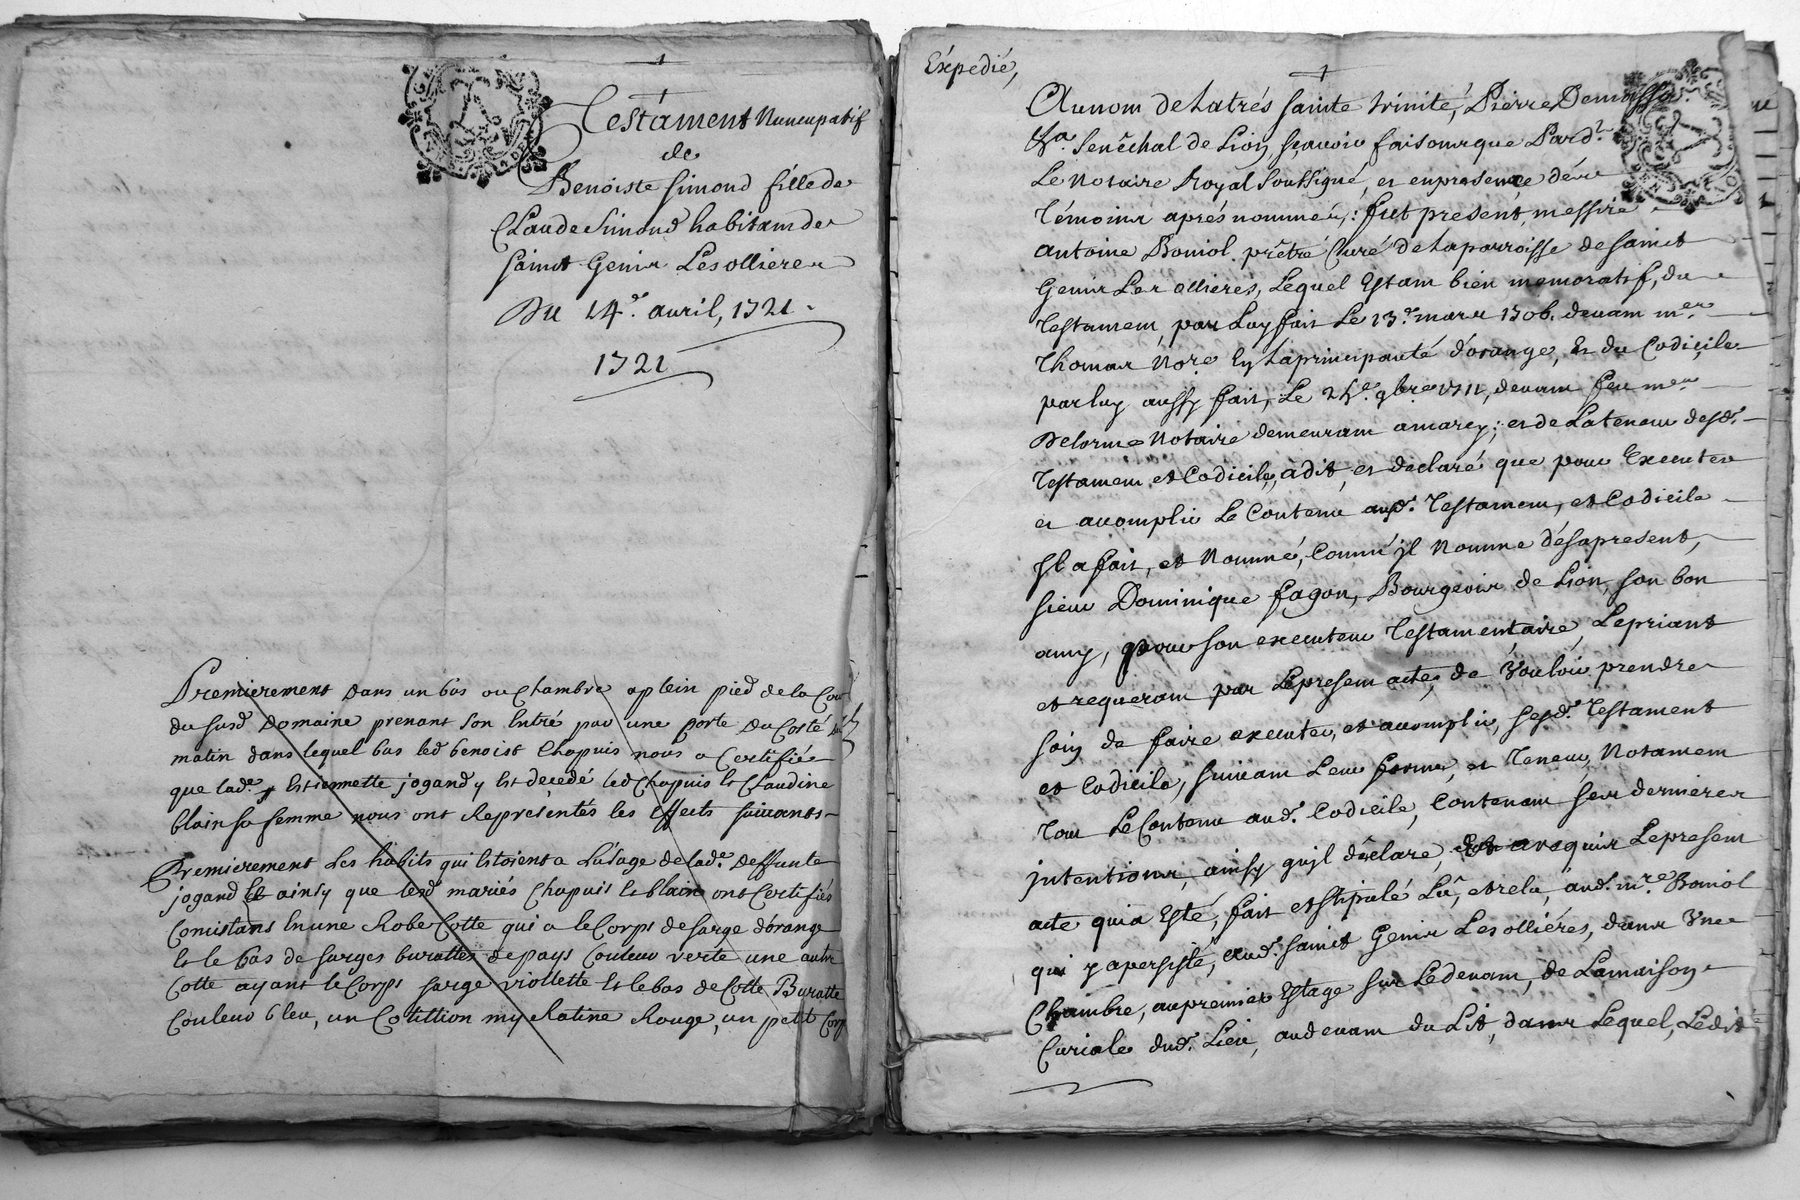 Testament Nuncupatif
de
Benoiste Simond fille de
Claude Simond habitant de
Sainct Genis Les ollieres
Du 14e. avril, 1721.
1721
Premierement Dans un bas ou Chambre aplein pied de la Cour
du susd Domaine prenant son Entré par une porte Du Costé de
matin dans lequel bas led benoist Chapuis nous a Certifié
que lad.e Estiennette jogand y Est decedé led Chapuis Et Claudine
blain sa femme nous ont Representés les Effects suivants
Premierement Les habits qui Estoient a Lusage de lad.e Deffunte
jogand Et ainsy que lesd mariés Chapuis Et blain ont Certifiés
Concistans En une Robe Cotte qui a le Corps de sarge d'orange
Et le bas de sarges burattes de pays Couleur verte une autre
Cotte ayant le Corps sarge viollette Et le bas de Cotte Buratte
Couleur bleu, un Cotillion my Ratine Rouge, un petit Corp
Expedié,
Au nom de La trés sainte trinité, Pierre
Senêchal de Lion, sçavoir faisons que Pard.t
Le Notaire Royal Soussigné, et en presence dés
Témoins aprés nommés; fut present, messire
Antoine Boniol prêtre Curé de La parroisse de sainct
Genis Les ollieres, Lequel Estant bien memoratif, du
Testament par Luy fait Le 13.e mars 1706. devant m.er
Thomas No.re En La principauté d'orange, Et du Codicile
par luy aussy fait, Le 9bre 1711, devant feu m.e
Delorme Notaire demeurant a marcy; et de La teneur desd.
Testament et Codicile, a dit, et declaré que pour Executer
et accomplir Le Contenu aud. Testament, et Codicile
Il a fait, et Nommé, Comme jl Nomme dés apresent,
sieur Dominique fagon, Bourgeois de Lion, son bon
amy, pour son executeur Testamentaire, Le priant
et requerant par Le present acte, de Vouloir prendre
soin de faire executer, et accomplir, sesd. Testament
et Codicile, suivant Leur forme, et Teneur, Notament
tout Le Contenu aud. Codicile, Contenant ses dernieres
jntentions, ainsy qu'jl déclare, requis Le present
acte qui a Esté, fait et stipulé Lû, et relu, aud. m.re Boniol
qui y a persisté, aud. sainct Genis Les olliéres, dans Vne
Chambre, au premier Estage sur Le devant, de La maison
Curiale dud. Lieu, au devant du Lit, dans Lequel, Ledit